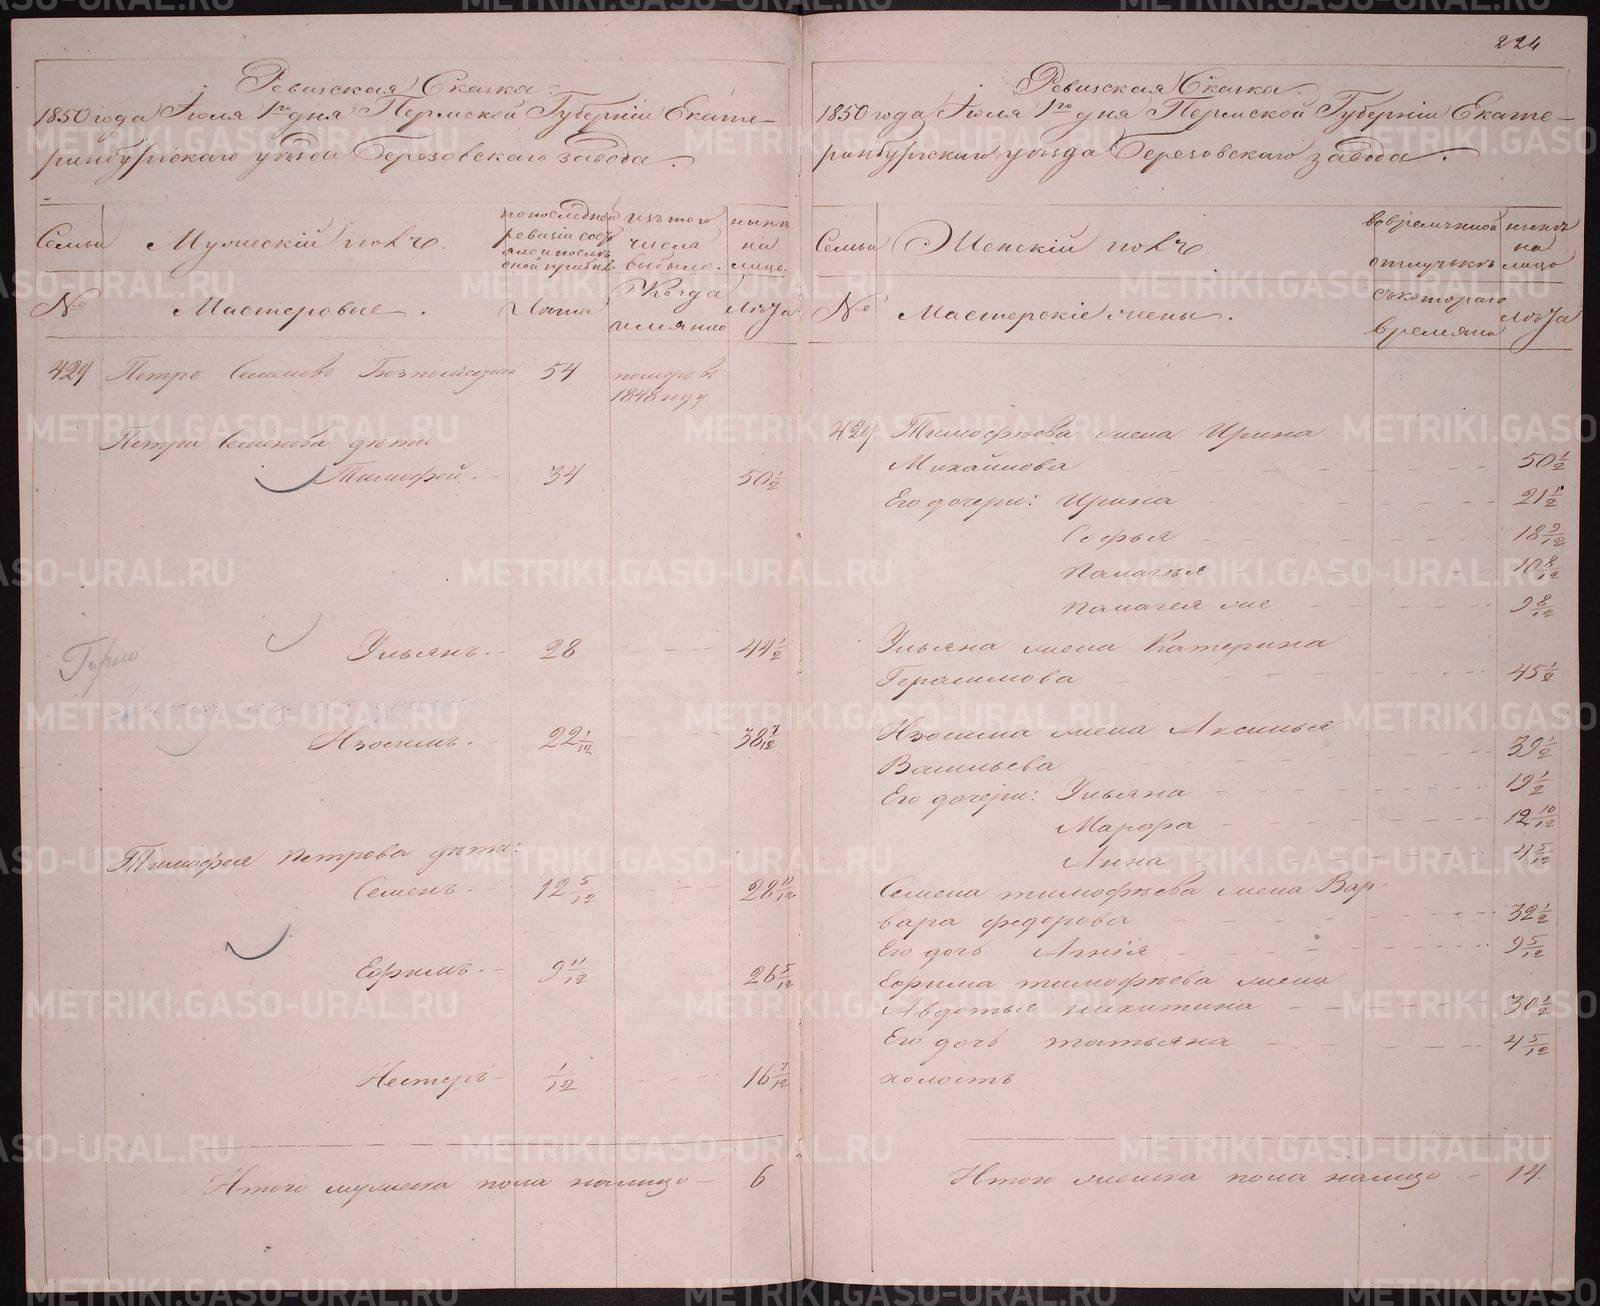 Ревизская Сказка.
1850 года Іюля 1го дня Пермской Губерніи Екате-
ринбургскаго уѣзда Березовскаго завода.
Семьи
Мужескій полъ.
по последней
ревизіи сост
изъ того
числа
выбыло.
нынѣ
на
лицо.
№
Мастеровые.
Лѣта
Когда
имянно
Лѣта
429 Петръ Семеновъ 54 померъ въ
1848 году
Петра Семенова дѣти
Тимофей. 34 50 1/2
Ульянъ. 28 44 1/2
Изосимъ. 22 1/12 38 7/12
Тимофея Петрова дѣти:
Семенъ. 12 5/12 28 11/12
Ефимъ. 9 11/12 26 5/12
Нестеръ 1/12 16 7/12
Итого мужеска пола налицо - 6
224
Ревизская Сказка.
1850 года Іюля 1го дня Пермской Губерніи Екате-
ринбургскаго уѣзда Березовскаго завода.
Семьи
Женскій полъ
во временной
отлучкѣ
нынѣ
на
лицо
№
Мастерскіе жены.
съ котораго
времяни
Лѣта
429 Тимофѣева жена Ирина
Михайлова 50 1/2
Его дочери: Ирина 21 1/2
Софья 18 9/12
Палагья 10 8/12
Палагея же 9 8/12
Ульяна жена Катерина
Герасимова 45 1/2
Изосима жена Аксинья
Васильева 39 1/2
Его дочери: Ульяна 19 1/2
Марфа 12 10/12
Анна 4 5/12
Семена тимофѣева жена Вар
вара федорова 32 1/2
Его дочь Агнія 9 5/12
Ефима тимофѣева жена
Авдотья никитина 30 1/2
Его дочь татьяна 4 5/12
холостъ
Итого женска пола налицо - 14.
METRIKI.GASO-URAL.RU